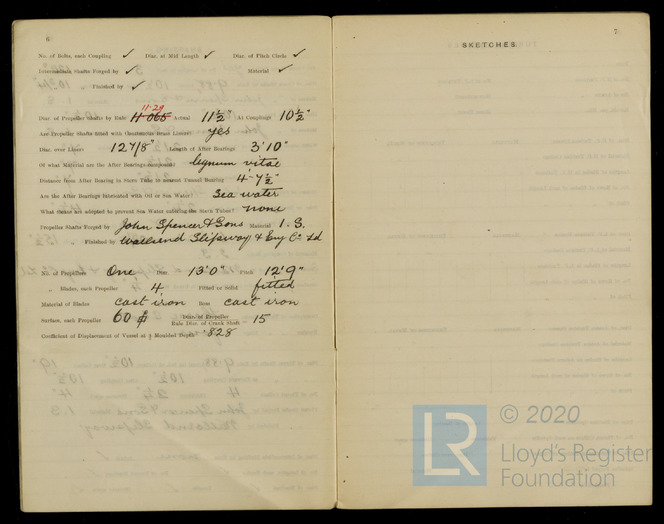 6
No. of Bolts, each Coupling ✓ Diar. at Mid Length ✓ Diar. of Pitch Circle ✓
Intermediate Shafts Forged by ✓ Material ✓
„ Finished by ✓
11.29
Diar. of Propeller Shafts by Rule 11.065 Actual 11½" At Couplings 10½"
Are Propeller Shafts fitted with Continuous Brass Liners? yes
Diar. over Liners 12⅞" Length of After Bearings 3'10"
Of what Material are the After Bearings composed? Lignum vitae
Distance from After Bearing in Stern Tube to nearest Tunnel Bearing 4'-7½"
Are the After Bearings lubricated with Oil or Sea Water? Sea water
What means are adopted to prevent Sea Water entering the Stern Tubes? none
Propeller Shafts Forged by John Spencer & Sons Material I.S.
„ Finished by Wallsend Slipway & Eng Co Ld
No. of Propellers One Diar. 13'0" Pitch 12'9"
„ Blades, each Propeller 4 Fitted or Solid fitted
Material of Blades cast iron Boss cast iron
Surface, each Propeller 60 Diar. of Propeller
Rule Diar. of Crank Shaft = 15
Coefficient of Displacement of Vessel at Moulded Depth .828
7
SKETCHES
LR
© 2020
Lloyd's Register
Foundation